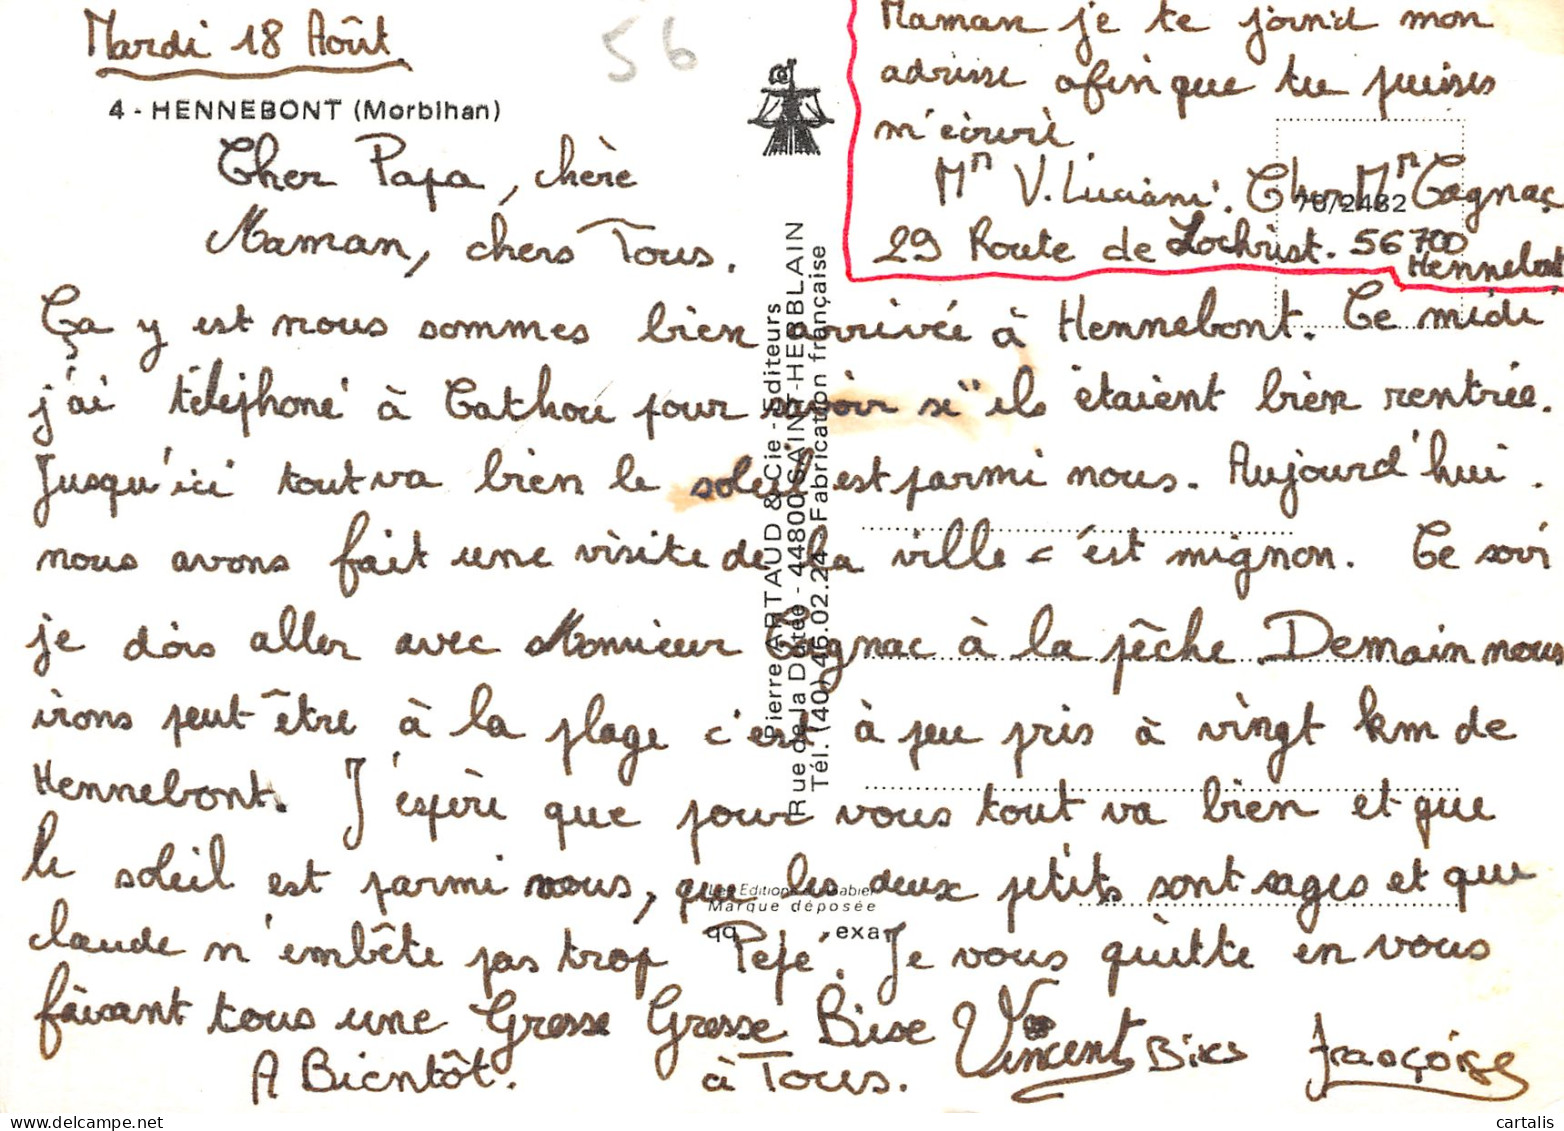 Mardi 18 Août
56
4 - HENNEBONT (Morbihan)
Maman je te joind mon
adresse afin que tu puisses
m'écrire
Mr V. Luciani. Cher Mr Cagnac
29 Route de Lochrist. 56 700
Hennebont
78/2482
Cher Papa, chère
Maman, chers Tous.
Ça y est nous sommes bien arrivée à Hennebont. Ce midi
j'ai téléphoné à Cathou pour savoir si ils étaient bien rentrée.
Jusqu'ici tout va bien le soleil est parmi nous. Aujourd'hui
nous avons fait une visite de la ville c'est mignon. Ce soir
je dois aller avec Monsieur Cagnac à la pêche. Demain nous
irons peut-être à la plage c'est à peu près à vingt km de
Hennebont. J'espère que pour vous tout va bien et que
le soleil est parmi vous, que les deux petits sont sages et que
claude n'embête pas trop Pépé. Je vous quitte en vous
faisant tous une Grosse Grosse Bise
à Tous.
A Bientôt.
Vincent Bises Françoise
Pierre ARTAUD & Cie - Editeurs
Rue de la Dutée - 44800 SAINT-HERBLAIN
Tél. (40) 46.02.24 Fabrication française
Les Editions du Gabier
Marque déposée
qq exa
cartalis